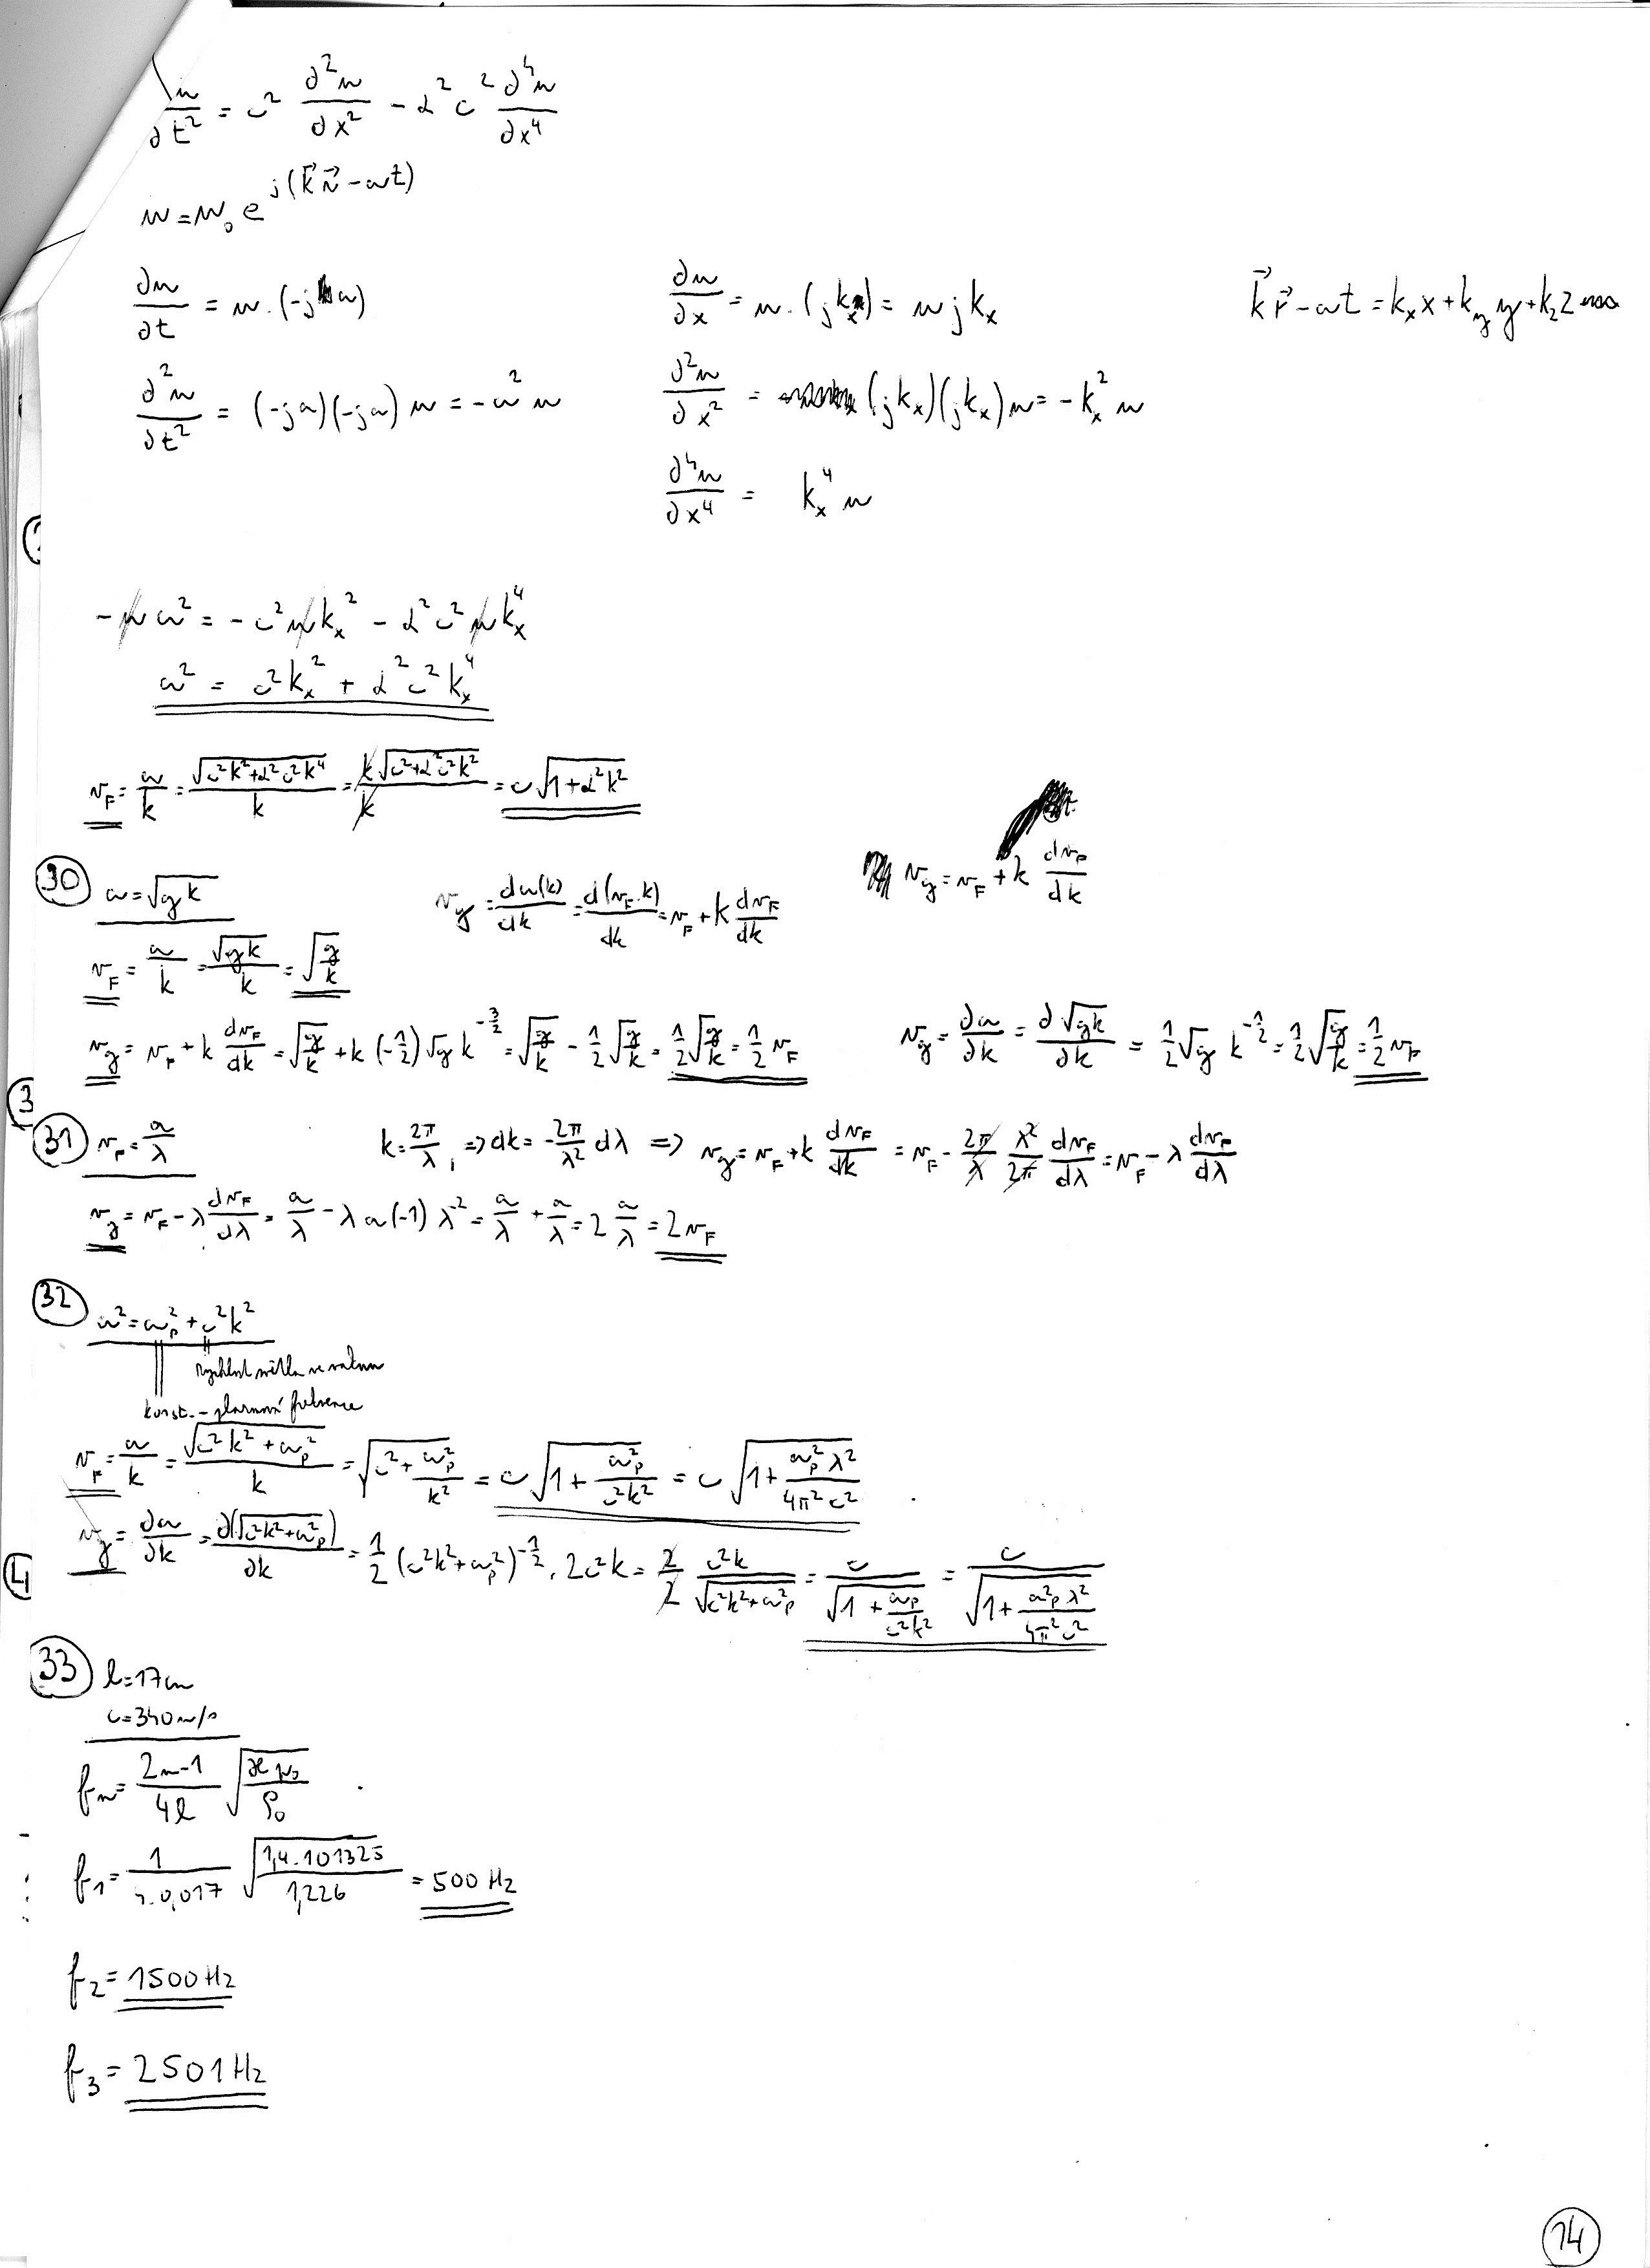 ∂²u/∂t² = c² ∂²u/∂x² − α²c² ∂⁴u/∂x⁴
u = u₀ e^{j(k⃗r⃗ − ωt)}
∂u/∂t = u·(−jω)    ∂u/∂x = u·(jkₓ) = u j kₓ    k⃗r⃗ − ωt = kₓx + k_y y + k_z z
∂²u/∂t² = (−jω)(−jω)u = −ω²u    ∂²u/∂x² = (jkₓ)(jkₓ)u = −kₓ²u
∂⁴u/∂x⁴ = kₓ⁴ u
−uω² = −c²ukₓ² − α²c²ukₓ⁴
ω² = c²kₓ² + α²c²kₓ⁴
v_F = ω/k = √(c²k²+α²c²k⁴)/k = k√(c²+α²c²k²)/k = c√(1+α²k²)
30 ω = √(gk)    v_g = dω(k)/dk = d(v_F·k)/dk = v_F + k dv_F/dk    v_g = v_F + k dv_F/dk
v_F = ω/k = √(gk)/k = √(g/k)
v_g = v_F + k dv_F/dk = √(g/k) + k(−1/2)√g k^{−3/2} = √(g/k) − 1/2 √(g/k) = 1/2 √(g/k) = 1/2 v_F    v_g = ∂ω/∂k = ∂√(gk)/∂k = 1/2 √g k^{−1/2} = 1/2 √(g/k) = 1/2 v_F
3
31 v_F = a/λ    k = 2π/λ, ⇒ dk = −2π/λ² dλ ⇒ v_g = v_F + k dv_F/dk = v_F − 2π/λ λ²/2π dv_F/dλ = v_F − λ dv_F/dλ
v_g = v_F − λ dv_F/dλ = a/λ − λa(−1)λ^{−2} = a/λ + a/λ = 2 a/λ = 2v_F
32 ω² = ω_p² + c²k²
rychlost světla ve vakuu
konst. – plasmová frekvence
v_F = ω/k = √(c²k²+ω_p²)/k = √(c²+ω_p²/k²) = c√(1+ω_p²/c²k²) = c√(1+ω_p²λ²/4π²c²)
v_g = ∂ω/∂k = ∂(√(c²k²+ω_p²))/∂k = 1/2 (c²k²+ω_p²)^{−1/2}·2c²k = 2/2 c²k/√(c²k²+ω_p²) = c/√(1+ω_p/c²k²) = c/√(1+ω²_pλ²/4π²c²)
4
33 l=17cm
c=340m/s
f_n = (2n−1)/4l √(ϰp₀/ρ₀)
f₁ = 1/(4·0,017) √(1,4·101325/1,226) = 500 Hz
f₂ = 1500 Hz
f₃ = 2501 Hz
14